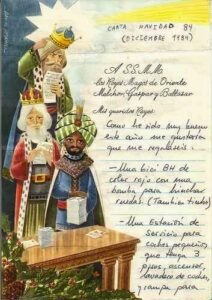 CARTA NAVIDAD 84
(DICIEMBRE 1984)
A SS.MM.
los Reyes Magos de Oriente
Melchor, Gaspar y Baltasar
Mis queridos Reyes:
Como he sido muy bueno
este año me gustaría
que me regaleis:
- Una bici BH de
color rojo con una
bomba para hinchar
ruedas. (Tambien timbre)
- Una Estación de
Servicio para
coches pequeños,
que tenga 3
pisos, ascensor,
lavadero de coches,
y rampa para